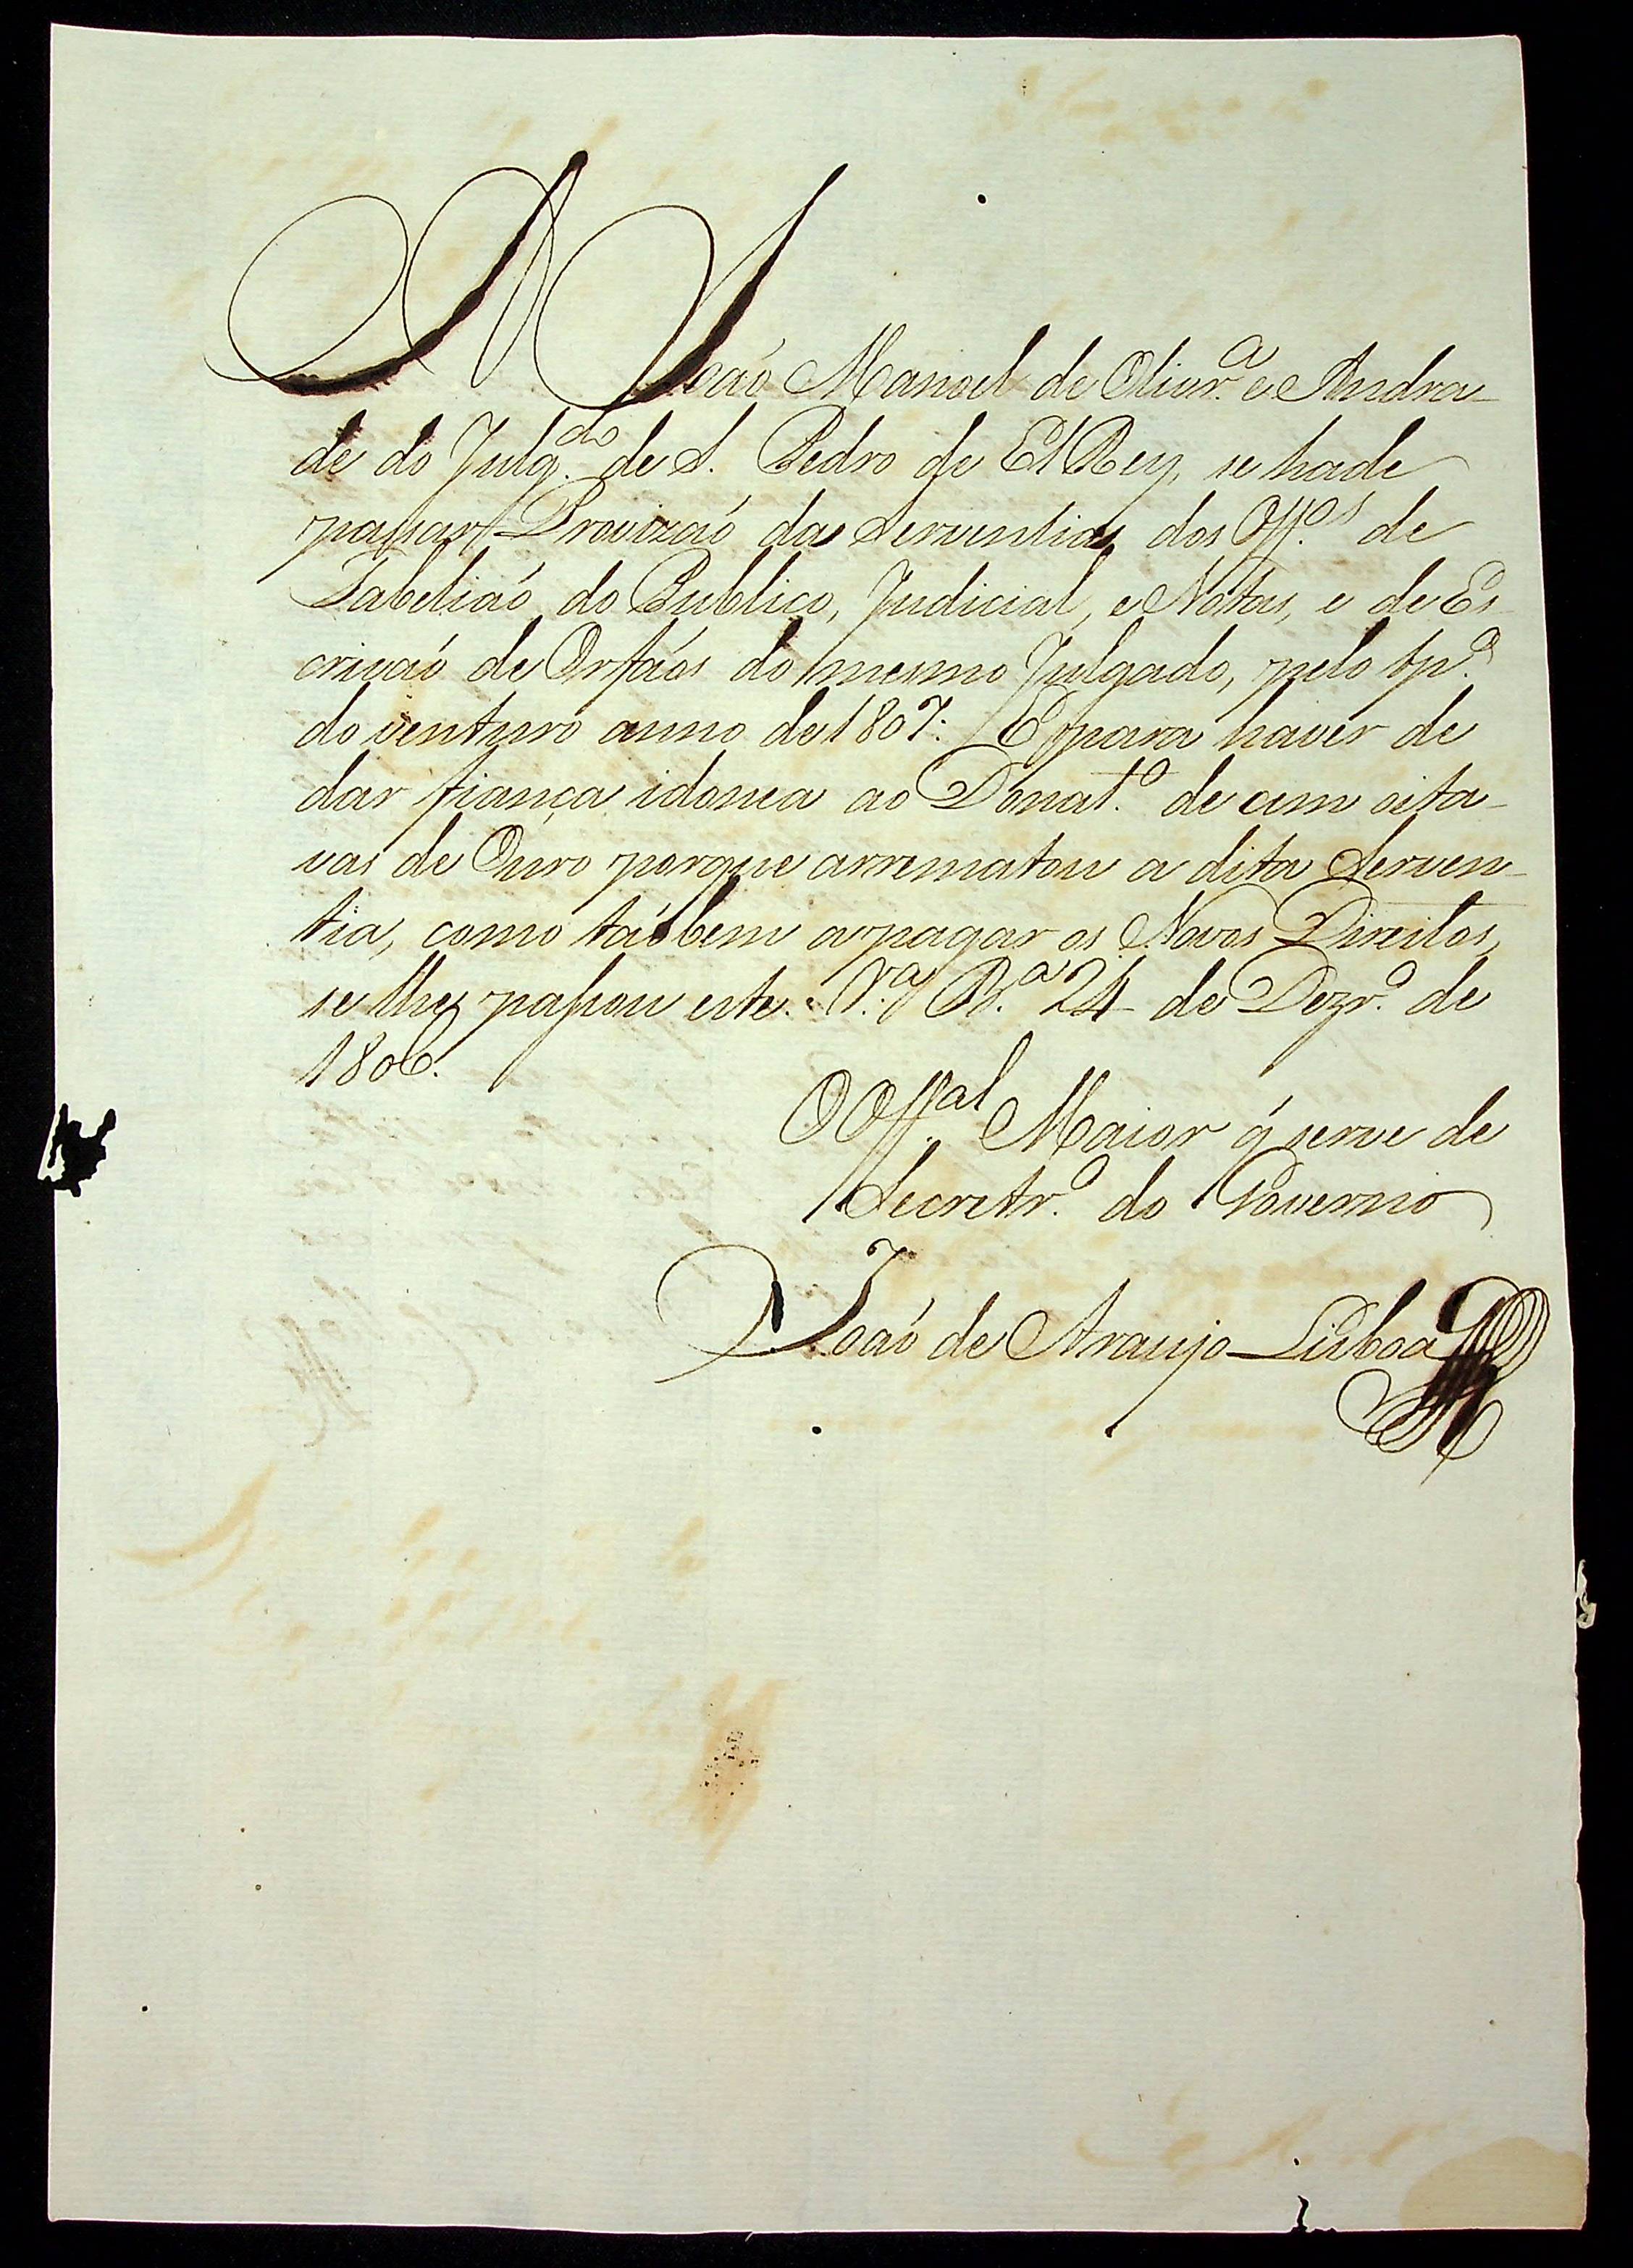 A João Manoel de Olivr.ª e Andra-
de do Julg.do de S. Pedro de El Rey, se hade
passar Provizaó da Serventia dos Off.os de
Tabeliaó do Publico, Judicial, e Notas, e de Es-
crivaó de Orfaós do mesmo Julgado, pelo tp.º
do venturo anno de 1807: E para haver de
dar fiança idonea ao Donat.º de cem oita-
vas de Ouro porque arrematou a dita Serven-
tia, como taóbem a pagar os Novos Direitos,
se lhe passou este. V.ª B.ª 24 de Dezr.º de
1806.
O Off.al Maior q̃ serve de
Secretr.º do Governo
João de Araujo Lisboa